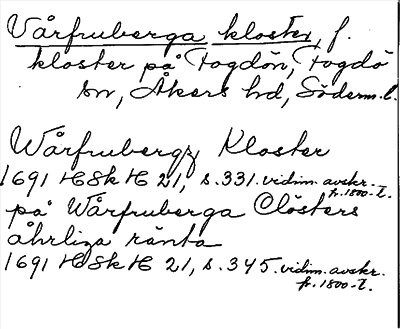 Vårfruberga kloster, f.
kloster på Fogdön, Fogdö
sn, Åkers hd, Söderm.l.
Wårfrubergz Kloster
1691 HSkH 21, s. 331. vidim. avskr.
fr. 1800-t.
på Wårfruberga Clösters
åhrliga ränta
1691 HSkH 21, s. 345. vidim. avskr.
fr. 1800-t.